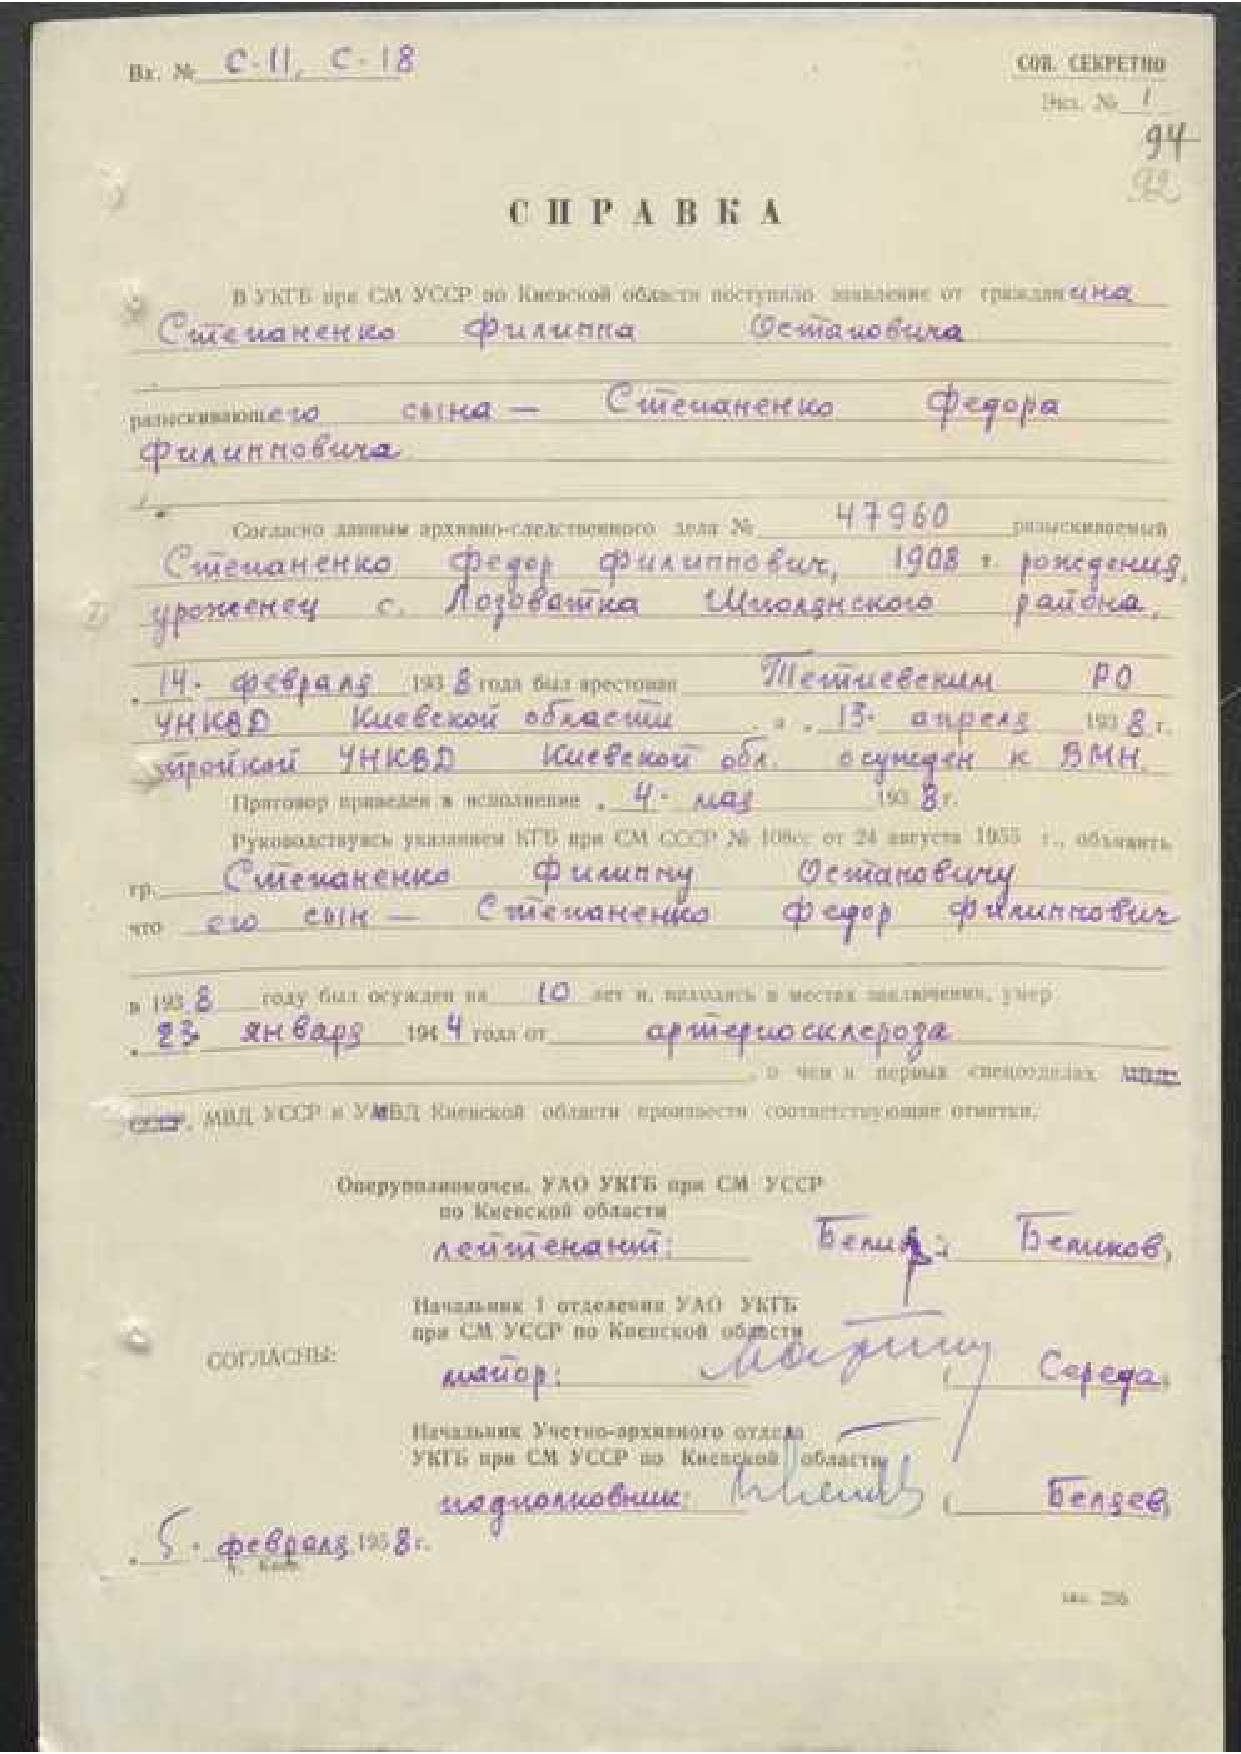 Вх. № С-11, С-18
СОВ. СЕКРЕТНО
Экз. № 1
94
92
СПРАВКА
В УКГБ при СМ УССР по Киевской области поступило заявление от гражданина
Степаненко Филиппа Остаповича
разыскивающего сына — Степаненко Федора
Филипповича
Согласно данным архивно-следственного дела № 47960 разыскиваемый
Степаненко Федор Филиппович, 1908 г. рождения,
уроженец с. Лозоватка Шполянского района,
14. февраля 1938 года был арестован Тетиевским РО
УНКВД Киевской области и 13. апреля 1938 г.
тройкой УНКВД Киевской обл. осужден к ВМН.
Приговор приведен в исполнение 4. мая 1938 г.
Руководствуясь указанием КГБ при СМ СССР № 108сс от 24 августа 1955 г., объявить
гр. Степаненко Филиппу Остаповичу
что его сын — Степаненко Федор Филиппович
в 1938 году был осужден на 10 лет и, находясь в местах заключения, умер
23 января 1944 года от артериосклероза
, о чем в первых спецотделах МВД
СССР, МВД УССР и УМВД Киевской области произвести соответствующие отметки.
Оперуполномочен. УАО УКГБ при СМ УССР
по Киевской области
лейтенант: Беликов,
Начальник 1 отделения УАО УКГБ
при СМ УССР по Киевской области
СОГЛАСНЫ:
майор: ( Середа,
Начальник Учетно-архивного отдела
УКГБ при СМ УССР по Киевской области
подполковник: ( Беляев,
5. февраля 1958 г.
г. Киев
зак. 256